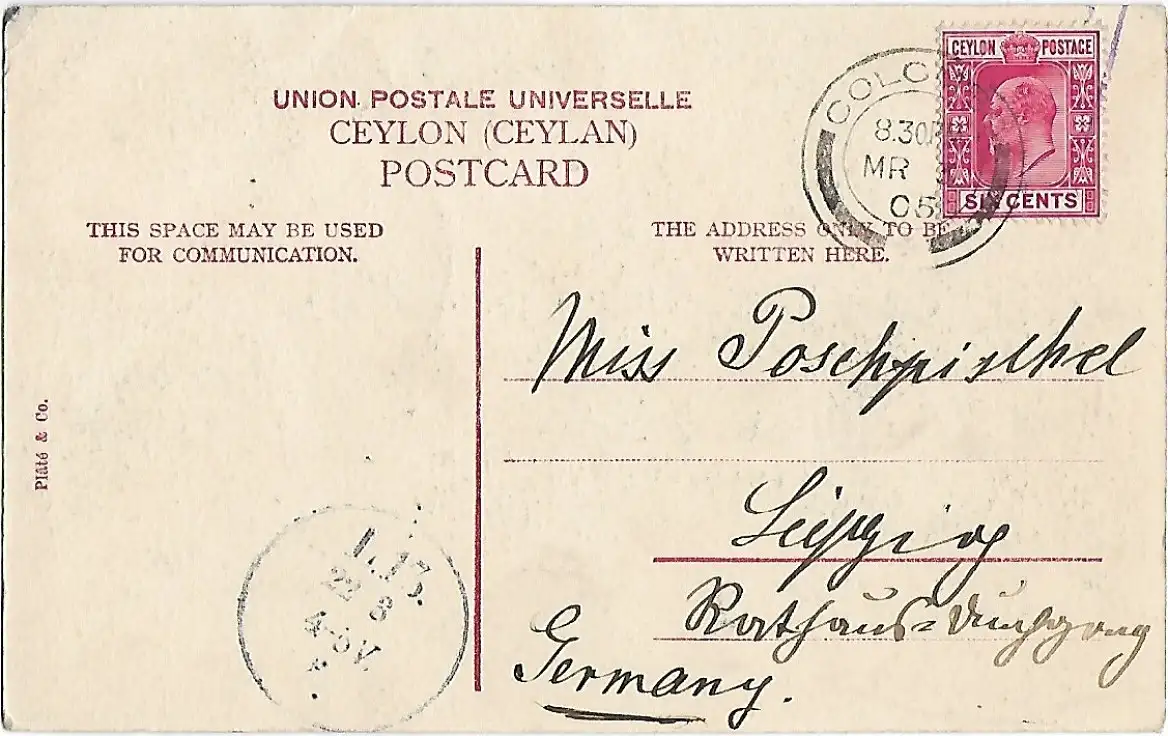 CEYLON POSTAGE
SIX CENTS
8.30
MR
05
UNION POSTALE UNIVERSELLE
CEYLON (CEYLAN)
POSTCARD
THIS SPACE MAY BE USED
FOR COMMUNICATION.
THE ADDRESS ONLY TO BE
WRITTEN HERE.
Miss Poschpischel
Leipzig
Rathaus-Durchgang
Germany.
Plâté & Co.
22 3